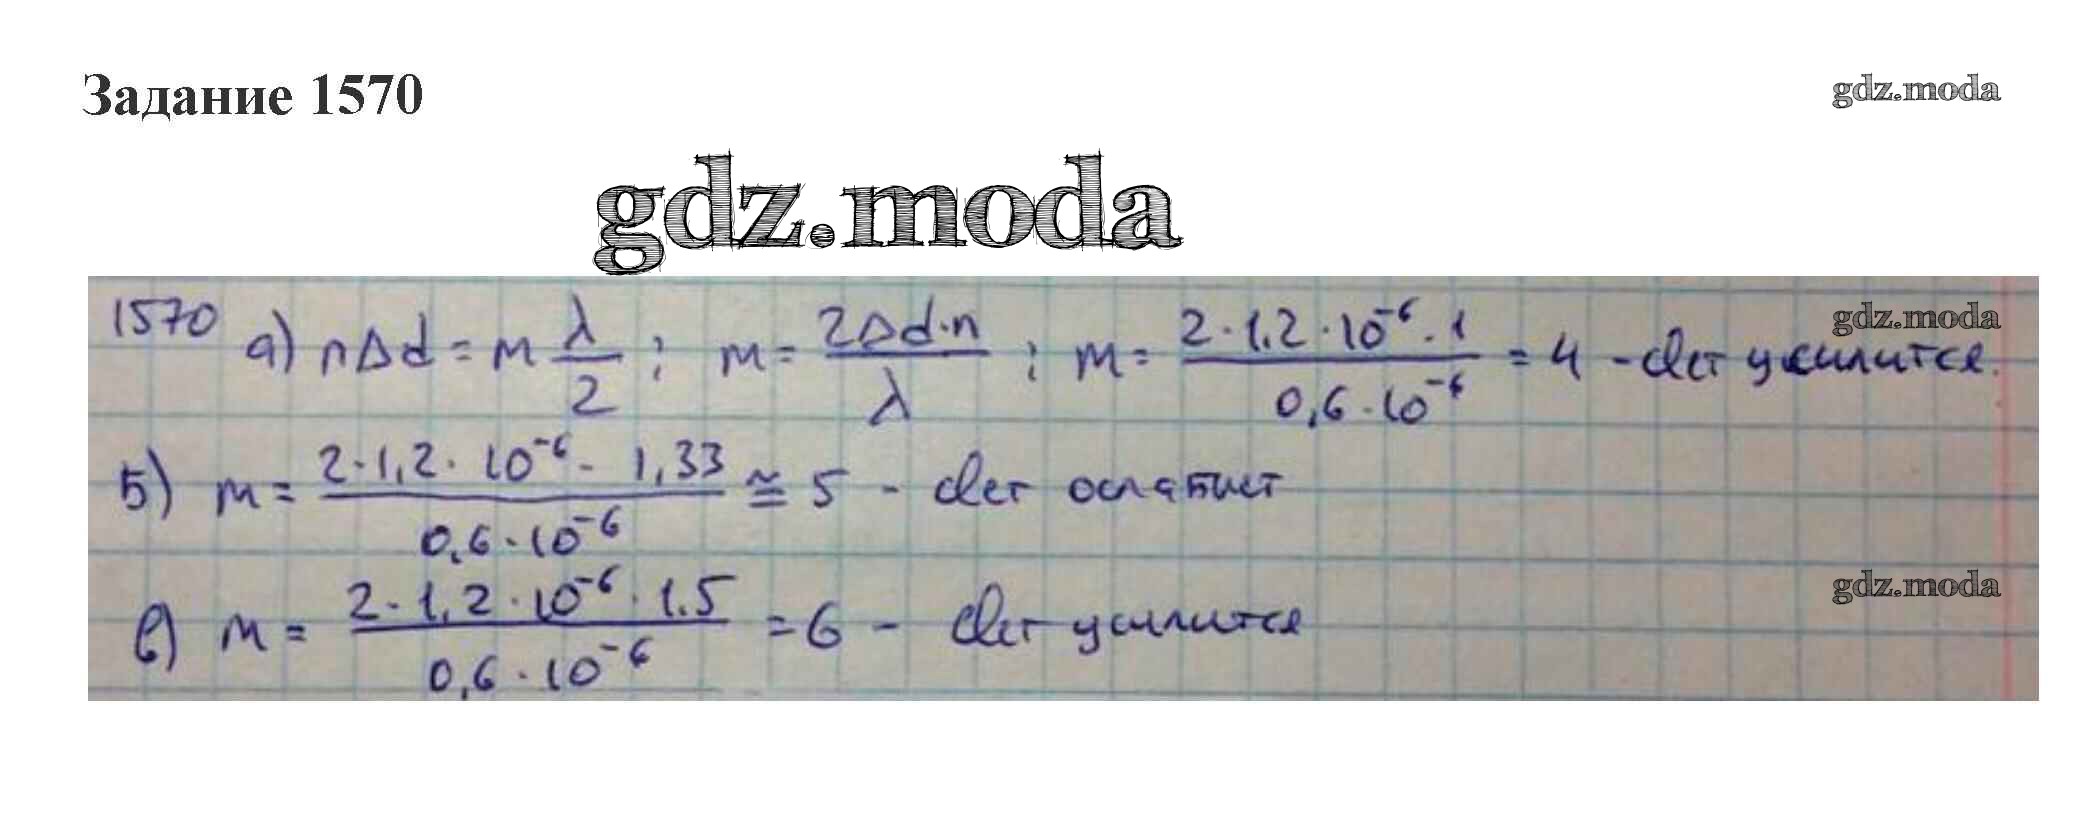 Задание 1570
gdz.moda
gdz.moda
1570 а) nΔd = m λ/2 ; m = 2Δd·n/λ ; m = 2·1,2·10⁻⁶·1/0,6·10⁻⁶ = 4 - свет усилится.
gdz.moda
б) m = 2·1,2·10⁻⁶·1,33/0,6·10⁻⁶ ≅ 5 - свет
в) m = 2·1,2·10⁻⁶·1.5/0,6·10⁻⁶ = 6 - свет усилится
gdz.moda